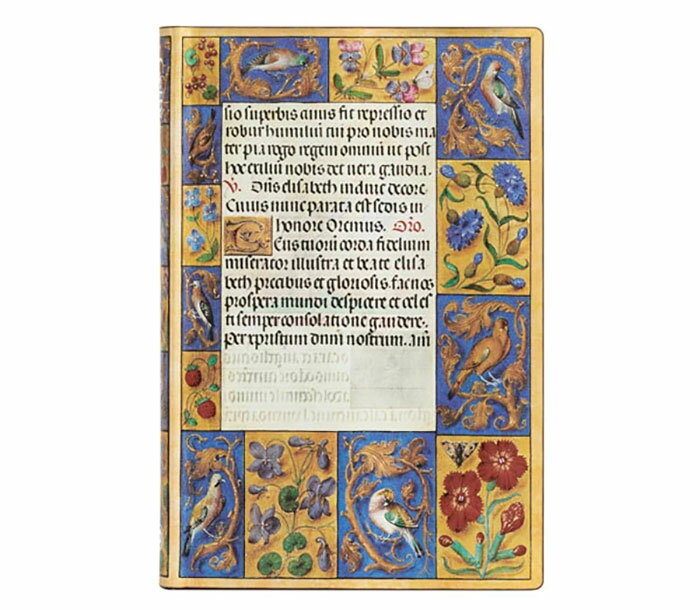 sio superbis cuius fit repressio et
robur humiliū cui pro nobis ma
ter pia rogo regem omniū ut post
hoc exiliū nobis det vera gaudia.
V. elisabeth decore
Cuius nunc parata est sedis in
honore Oremus. Oro.
Eus tuorū corda fidelium
miserator illustra et beate elisa
beth precibus et gloriosis fac nos
prospera mundi despicere et celes
ti semper consolatione gaudere.
Per xpristum dnm nostrum. am